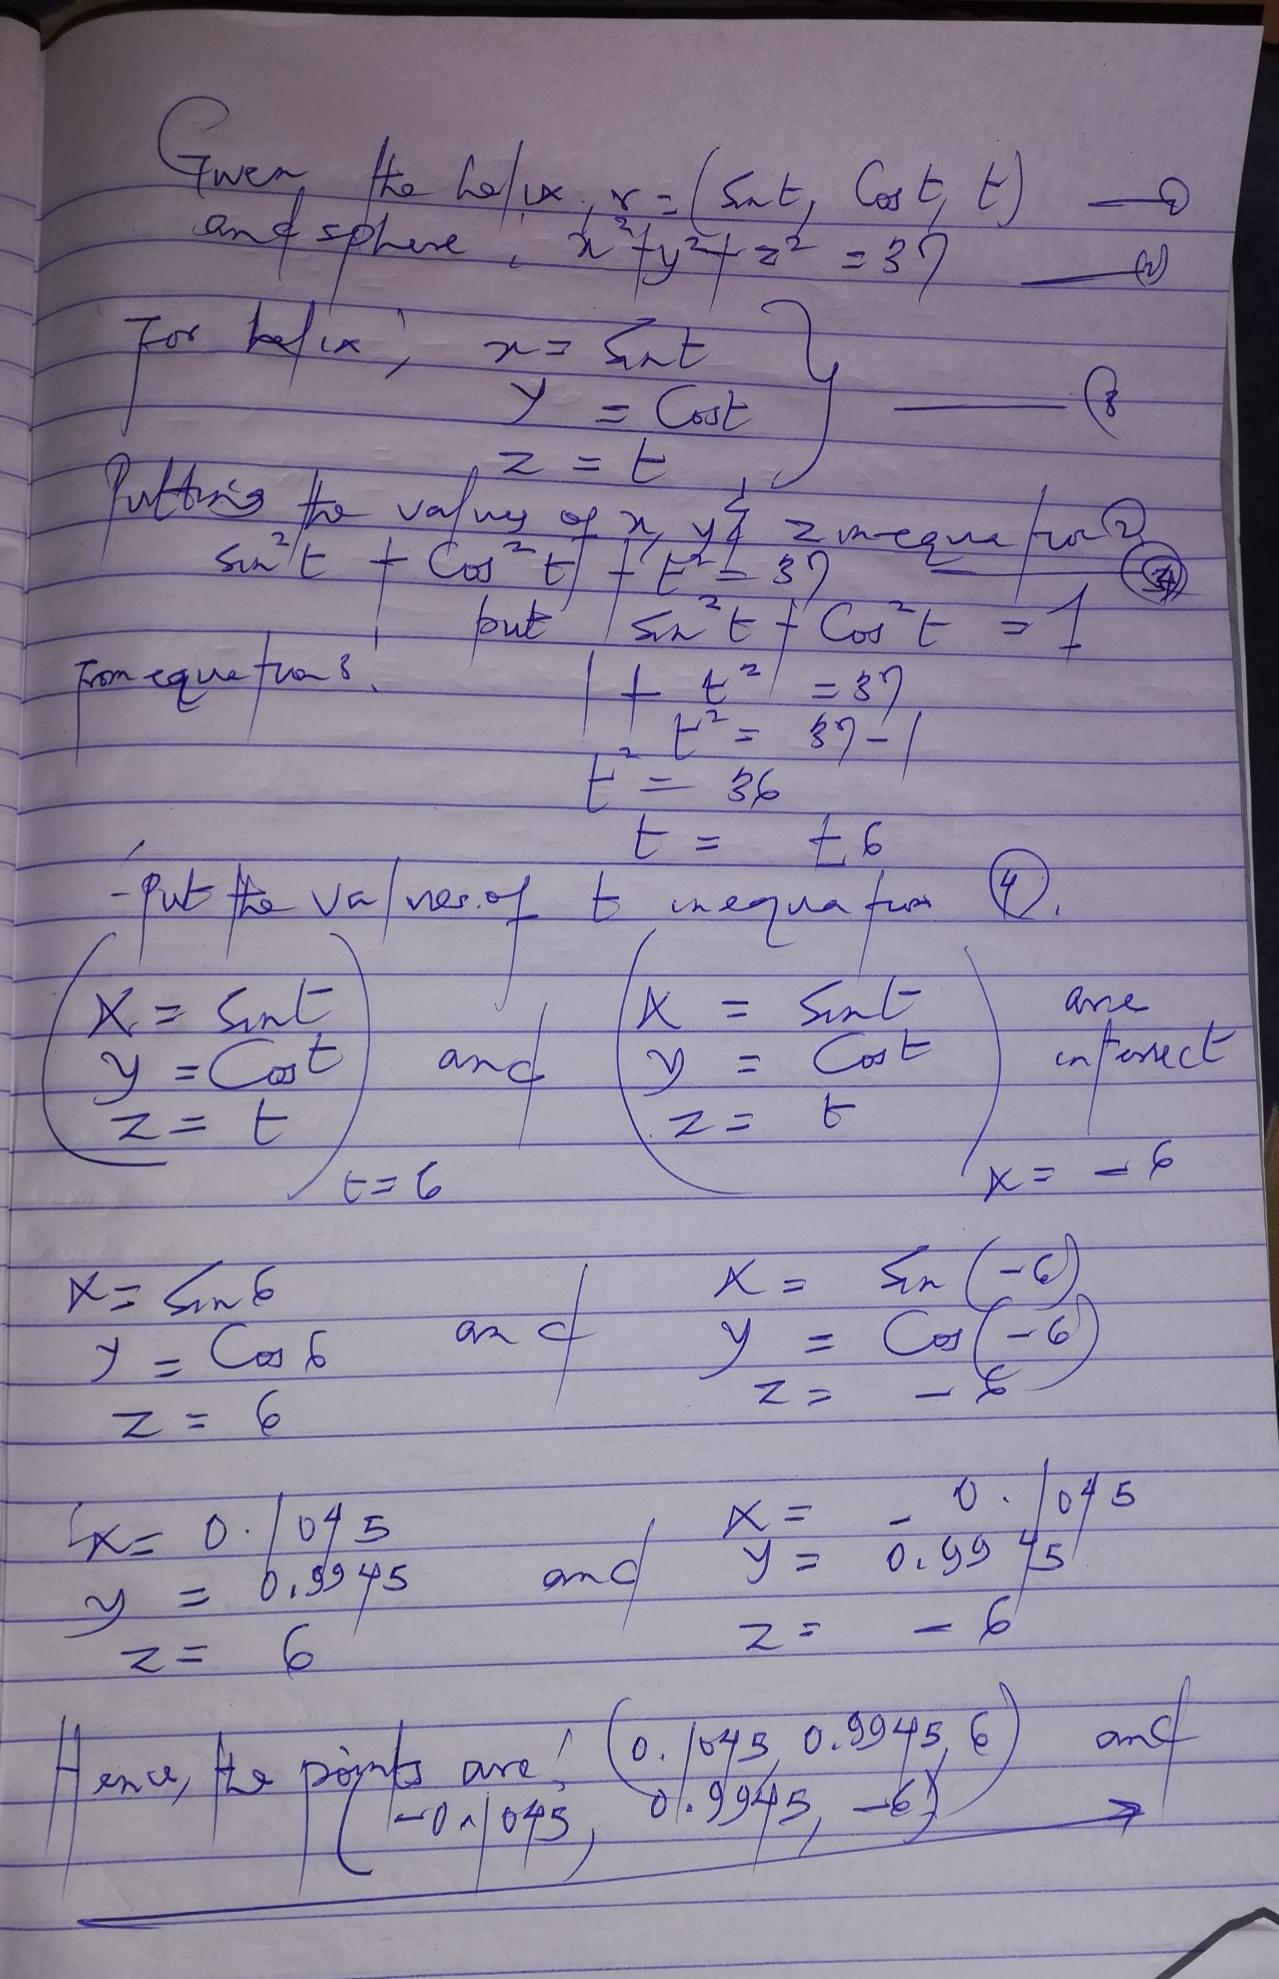 Given the helix, r = (Sint, Cost, t) —①
and sphere, x²+y²+z² = 37 —(2)
For helix, x = Sint
y = Cost —(3
z = t
Putting the values of x, y & z in equation 2
Sin²t + Cos²t + t² = 37
put Sin²t + Cos²t = 1
From equation 3, 1 + t² = 37
t² = 37-1
t² = 36
t = ±6
-Put the values of t in equation ④.
(X = Sint and (X = Sint are
y = Cost y = Cost intersect
z = t) z = t)
t=6 x = -6
X = Sin6 and X = Sin(-6)
y = Cos6 y = Cos(-6)
z = 6 z = -6
X = 0.1045 and X = -0.1045
y = 0.9945 y = 0.9945
z = 6 z = -6
Hence, the points are: (0.1045, 0.9945, 6) and
(-0.1045, 0.9945, -6)